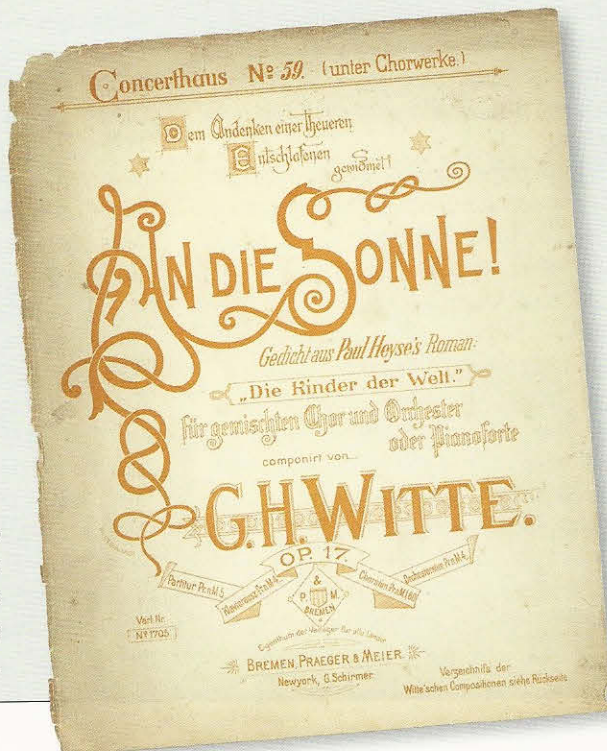 Concerthaus Nº 59. (unter Chorwerke.)
Dem Andenken einer theueren
Entschlafenen
gewidmet!
AN DIE SONNE!
Gedicht aus Paul Heyse's Roman:
„Die Kinder der Welt."
für gemischten Chor und Orchester
oder Pianoforte
componirt von
G.H. WITTE.
OP. 17.
Partitur Pr. n. M. 5.
Klavierauszug Pr. n. M.
Chorstimm. Pr. n. M.
Orchesterstim. Pr. n. M. 4.
P. & M.
BREMEN
Verl. Nr.
Nº 1705
Eigenthum der Verleger für alle Länder
BREMEN, PRAEGER & MEIER.
Newyork, G. Schirmer.
Verzeichnifs der
Witte'schen Compositionen siehe Rückseite